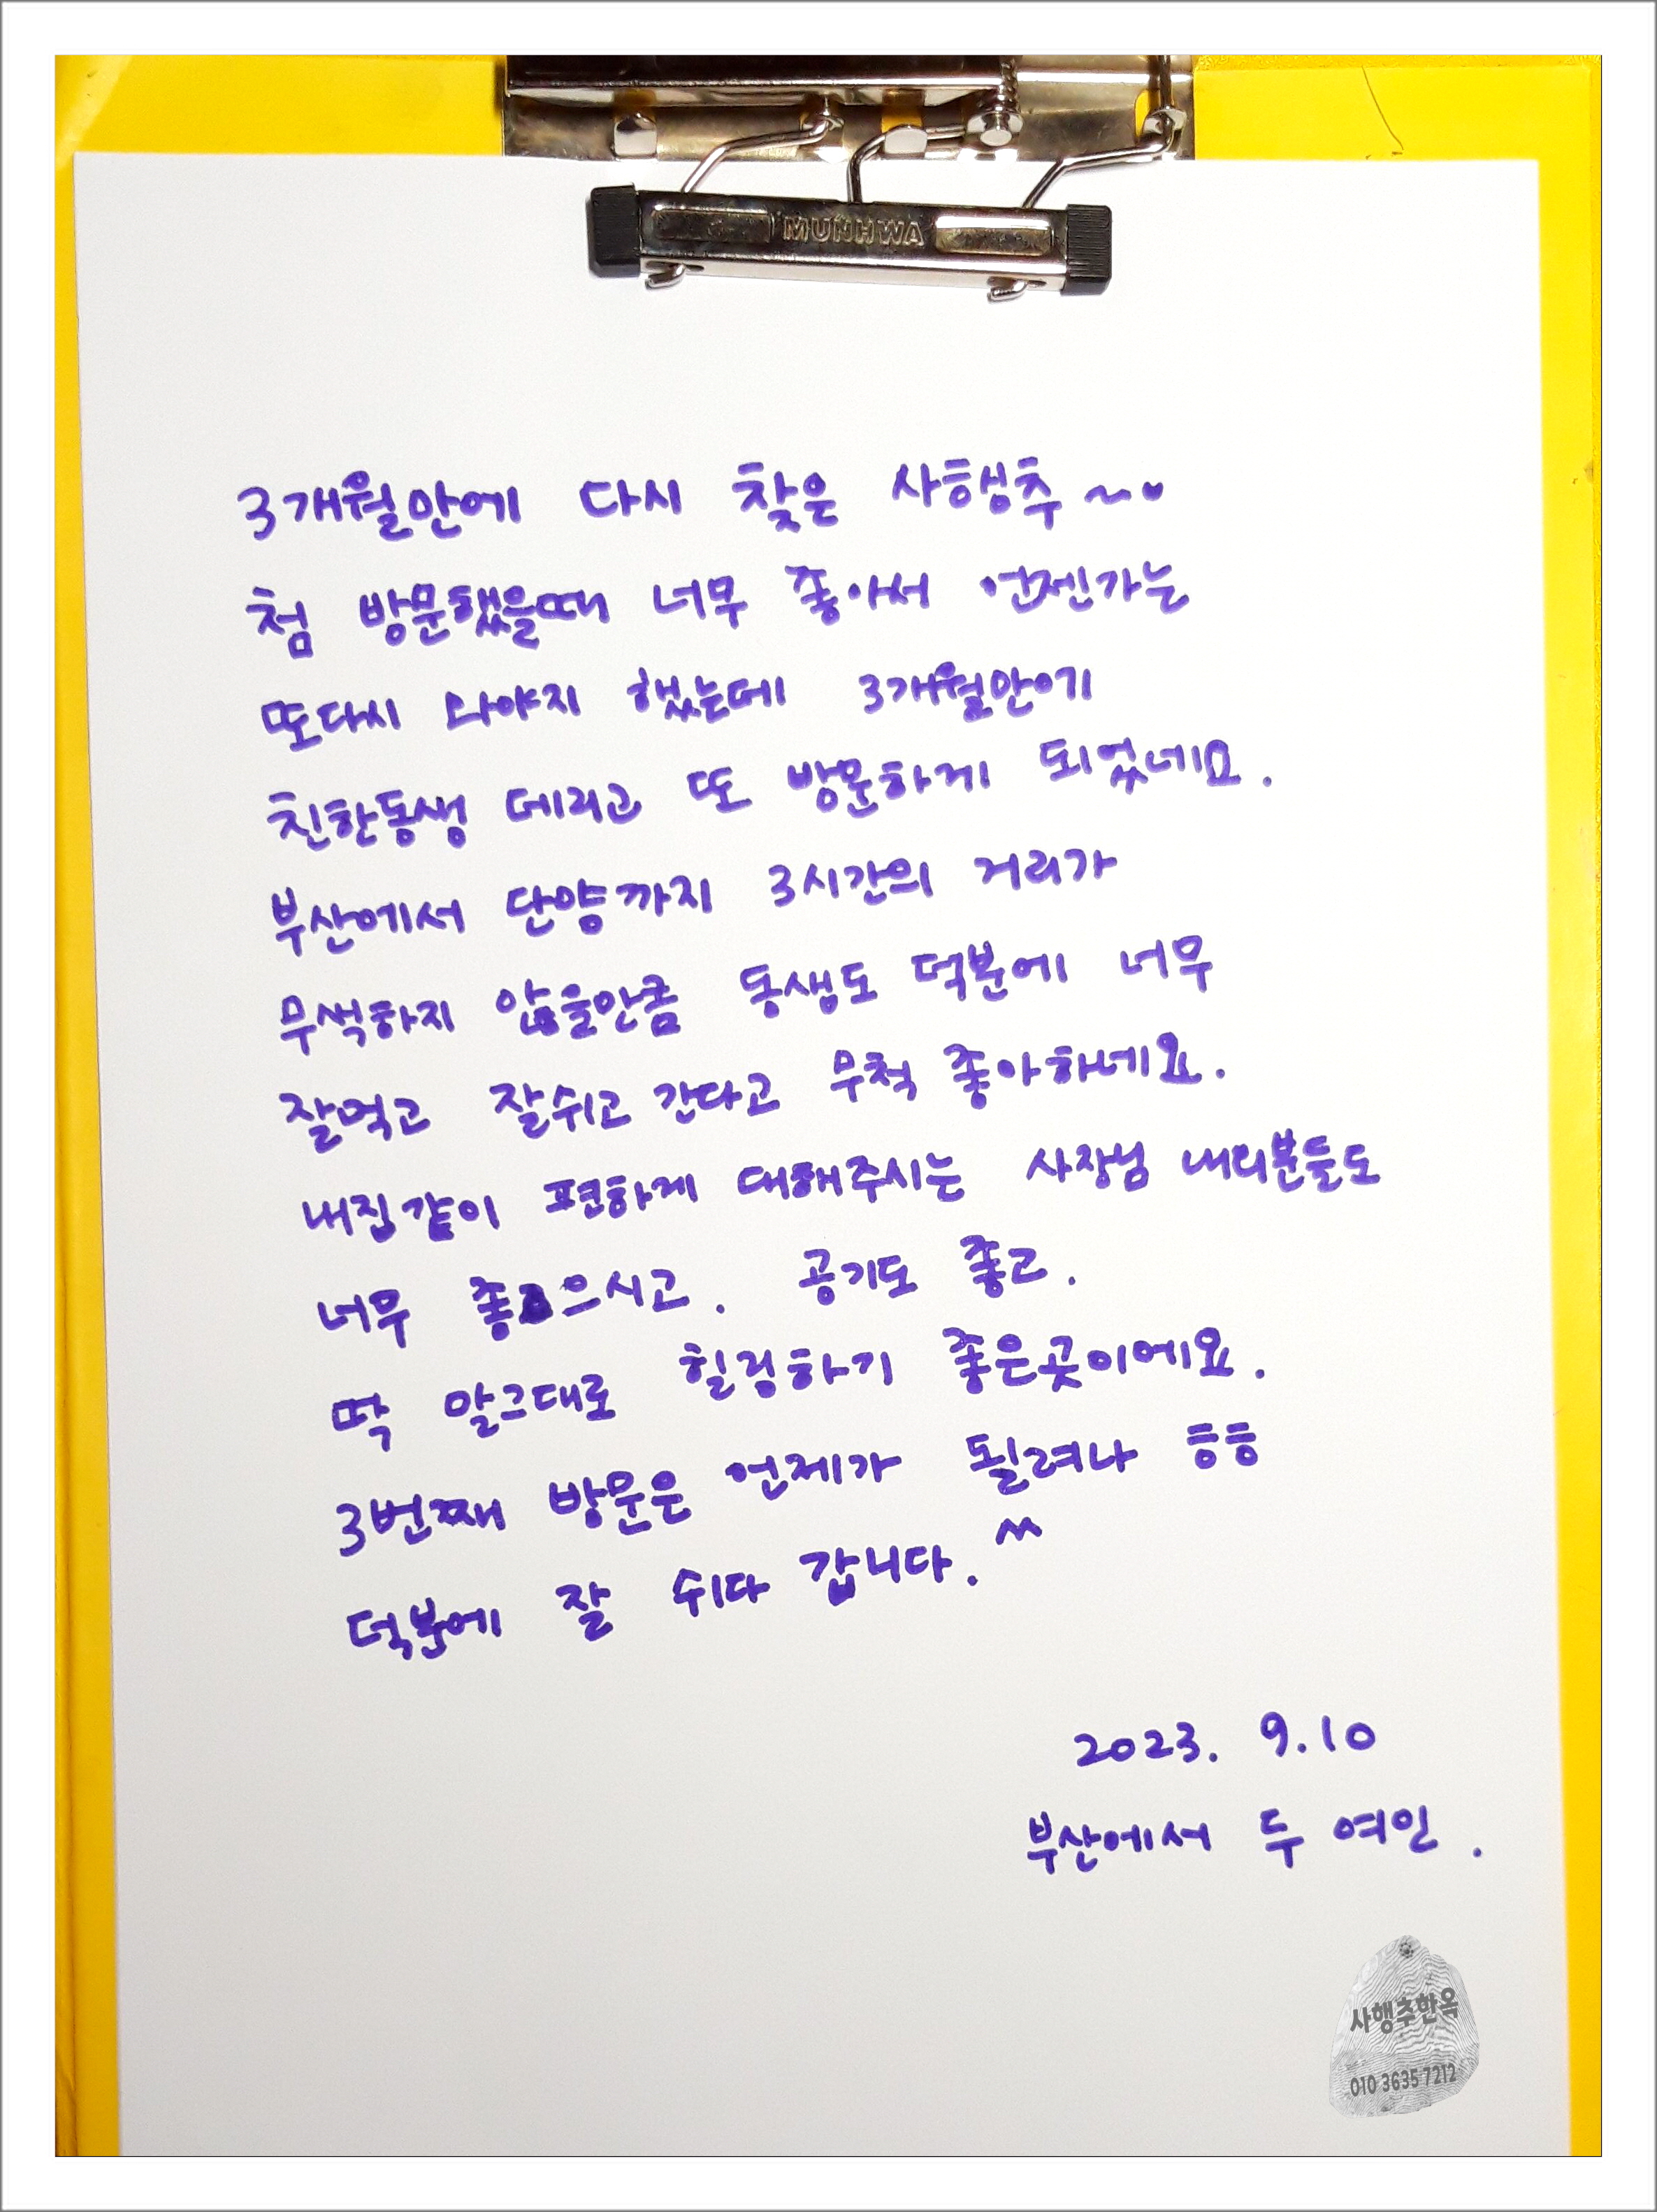 MUNHWA
3개월만에 다시 찾은 사행추~
첨 방문했을때 너무 좋아서 언젠가는
또다시 와야지 했는데 3개월만에
친한동생 데리고 또 방문하게 되었네요.
부산에서 단양까지 3시간의 거리가
무색하지 않을만큼 동생도 덕분에 너무
잘먹고 잘쉬고 간다고 무척 좋아하네요.
내집같이 편하게 대해주시는 사장님 내외분들도
너무 좋으시고. 공기도 좋고.
딱 말그대로 힐링하기 좋은곳이에요.
3번째 방문은 언제가 될려나 흐흐
덕분에 잘 쉬다 갑니다.^^
2023. 9.10
부산에서 두 여인.
사행추한옥
010 3635 7212